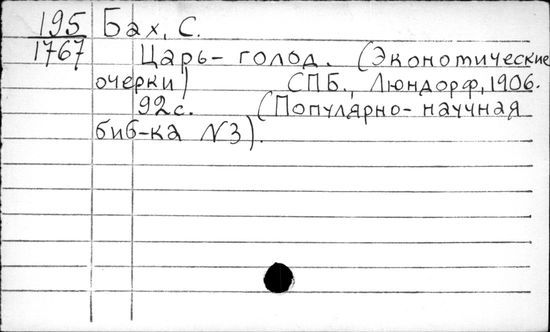 195 Бах, С.
1767 Царь-голод. (Экономические
очерки) СПБ., Люндорф, 1906.
92с. (Популярно-научная
биб-ка №3).